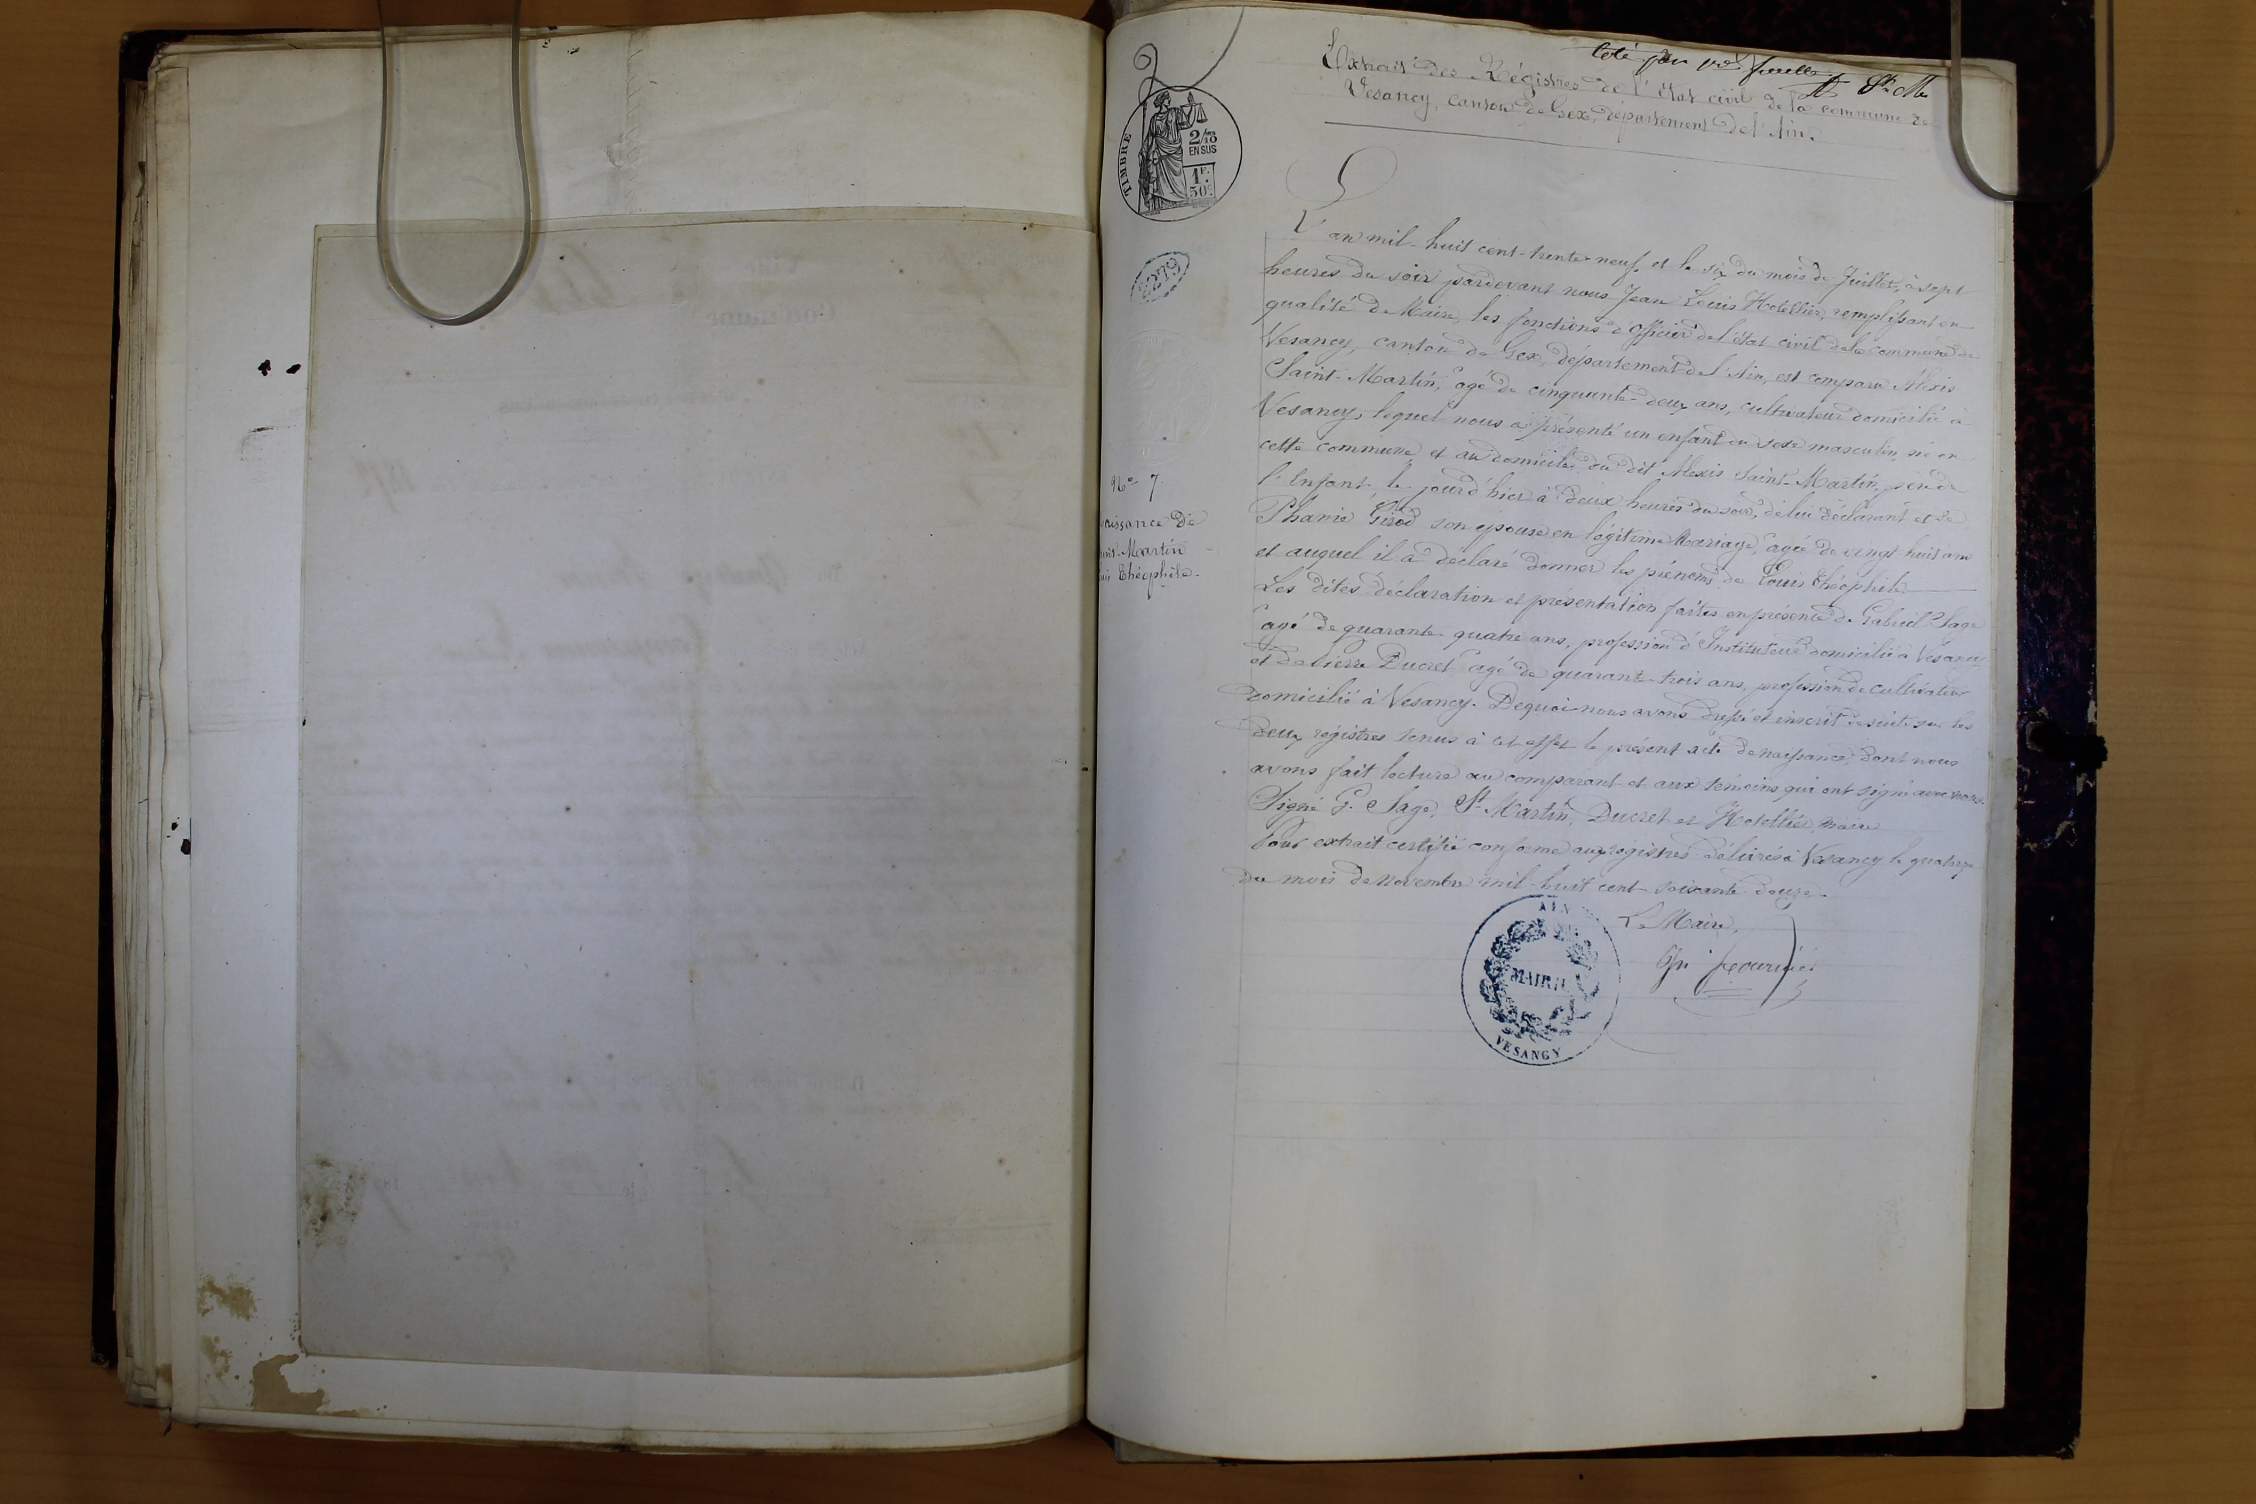 Coté par 1re feuille
Extrait des Régistres de l'état civil de la commune de
Vesancy, canton de Gex, département de l'Ain.
TIMBRE
2/10
EN SUS
1F.
50c.
2279
L'an mil-huit cent-trente-neuf et le six du mois de Juillet, à sept
heures du soir pardevant nous Jean Louis Hotellier, remplissant en
qualité de Maire, les fonctions d'officier de l'état civil de la commune de
Vesancy, canton de Gex, département de l'Ain, est comparu Alexis
Saint-Martin, agé de cinquante-deux ans, cultivateur domicilié à
Vesancy, lequel nous a présenté un enfant du sexe masculin, né en
cette commune, et au domicile du dit Alexis Saint-Martin, père de
l'Enfant, le jour d'hier à deux heures du soir, de lui déclarant et de
Phanie Girod son épouse en légitime Mariage, agée de vingt huit ans
et auquel il a déclaré donner les prénoms de Louis Théophile
Les dites déclaration et présentation faites en présence de Gabriel Sage
agé de quarante-quatre ans, profession d'Instituteur domicilié à Vesancy
et de Pierre Ducret agé de quarante-trois ans, profession de cultivateur
domicilié à Vesancy. Dequoi nous avons dressé et inscrit de suite sur les
deux régistres tenus à cet effet le présent acte de naissance, dont nous
avons fait lecture au comparant et aux témoins qui ont signé avec nous.
Signé G. Sage, St Martin, Ducret et Hotellier, maire
Pour extrait certifié conforme aux registres délivrés à Vesancy le quatorze
du mois de Novembre mil-huit cent-soixante douze.
No 7.
aissance de
int-Martin
uis Théophile.
Le Maire,
AIN
MAIRIE
VESANCY